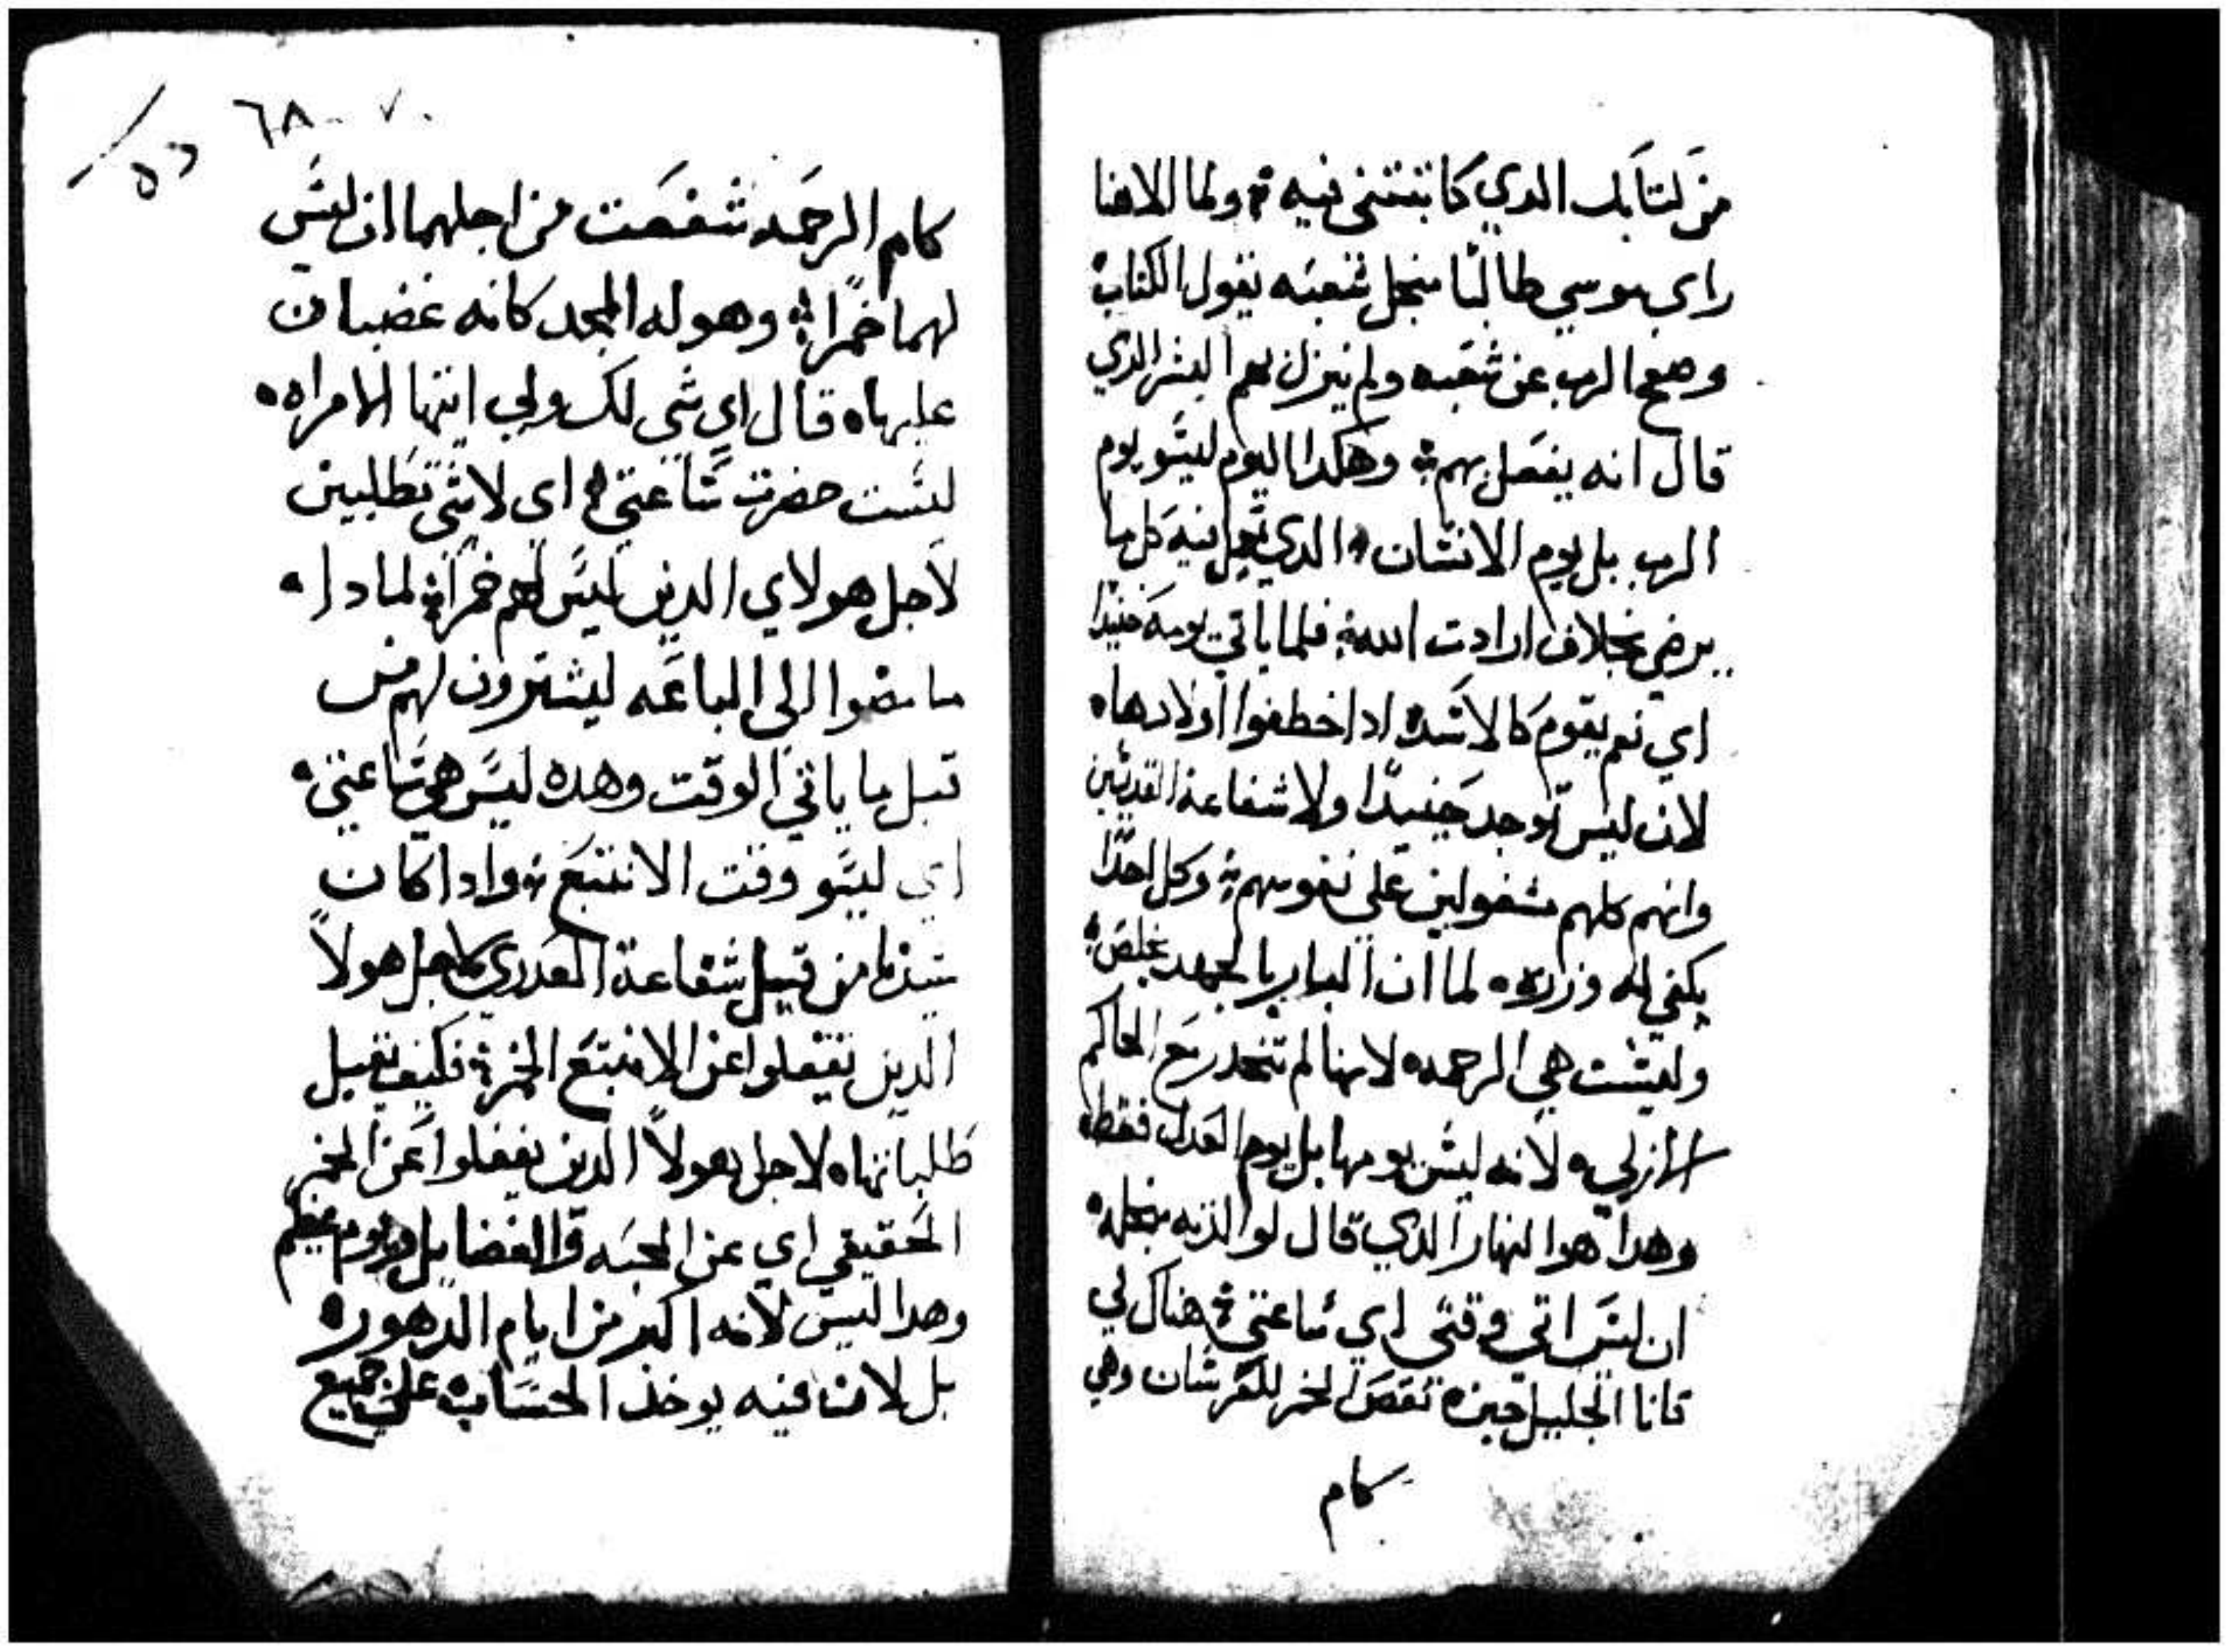 من كتابك الدي كاتبتني فيه ولما الاهنا
راي موسي طالبا منجل شعبه يقول الكتاب
وصفح الرب عن شعبه ولم ينزل بهم الشر الدي
قال انه يفعل بهم وهكدا اليوم ليسو يوم
الرب بل يوم الانسان الدي يعمل فيه كل ما
يرضي بخلاف ارادت الله فلما ياتي يومه حينيدا
اي نعم يقوم كالاسده ادا خطفوا اولادها
لان ليس توجد حينيدا ولا شفاعة القديسين
وانهم كلهم مشغولين علي نفوسهم وكل احدا
يكفي له وزره لما ان البار بالجهد يخلص
وليست هي الرحمه لانها لم تنحدر مع الحاكم
الازلي لانه ليس يومها بل يوم العدل فقط
وهدا هوا النهار الدي قال لوالدته منجله
ان ليس اتي وقتي اي ساعتي هناك في
قانا الجليل حين نقص الخمر للعرسان وهي
كام
٦٨ - ٧٠
٥٦
كام الرحمه شفعت من اجلهما ان ليس
لهما خمرا وهو له المجد كانه غضبان
عليها قال اي شي لك ولي ايتها الامراه
ليست حضرت ساعتي اي لاشي تطلبين
لاجل هولاي الدين ليس لهم خمرا لمادا
ما مضوا الي الباعه ليشترون لهم من
قبل ما ياتي الوقت وهده ليس هي ساعتي
اي ليسو وقت الانتبع وادا كان
سيدنا من قبيل شفاعة العدري لاجل هولا
الدين تغفلوا عن الانتبع الخمر فكيف يقبل
طلباتها لاجل هولا الدين يغفلوا عن الخمر
الحقيقي اي عن المحبه والفضايل يوم عظيم
وهدا ليس لانه اكبر من ايام الدهور
بل لان فيه يوخد الحساب علي جميع